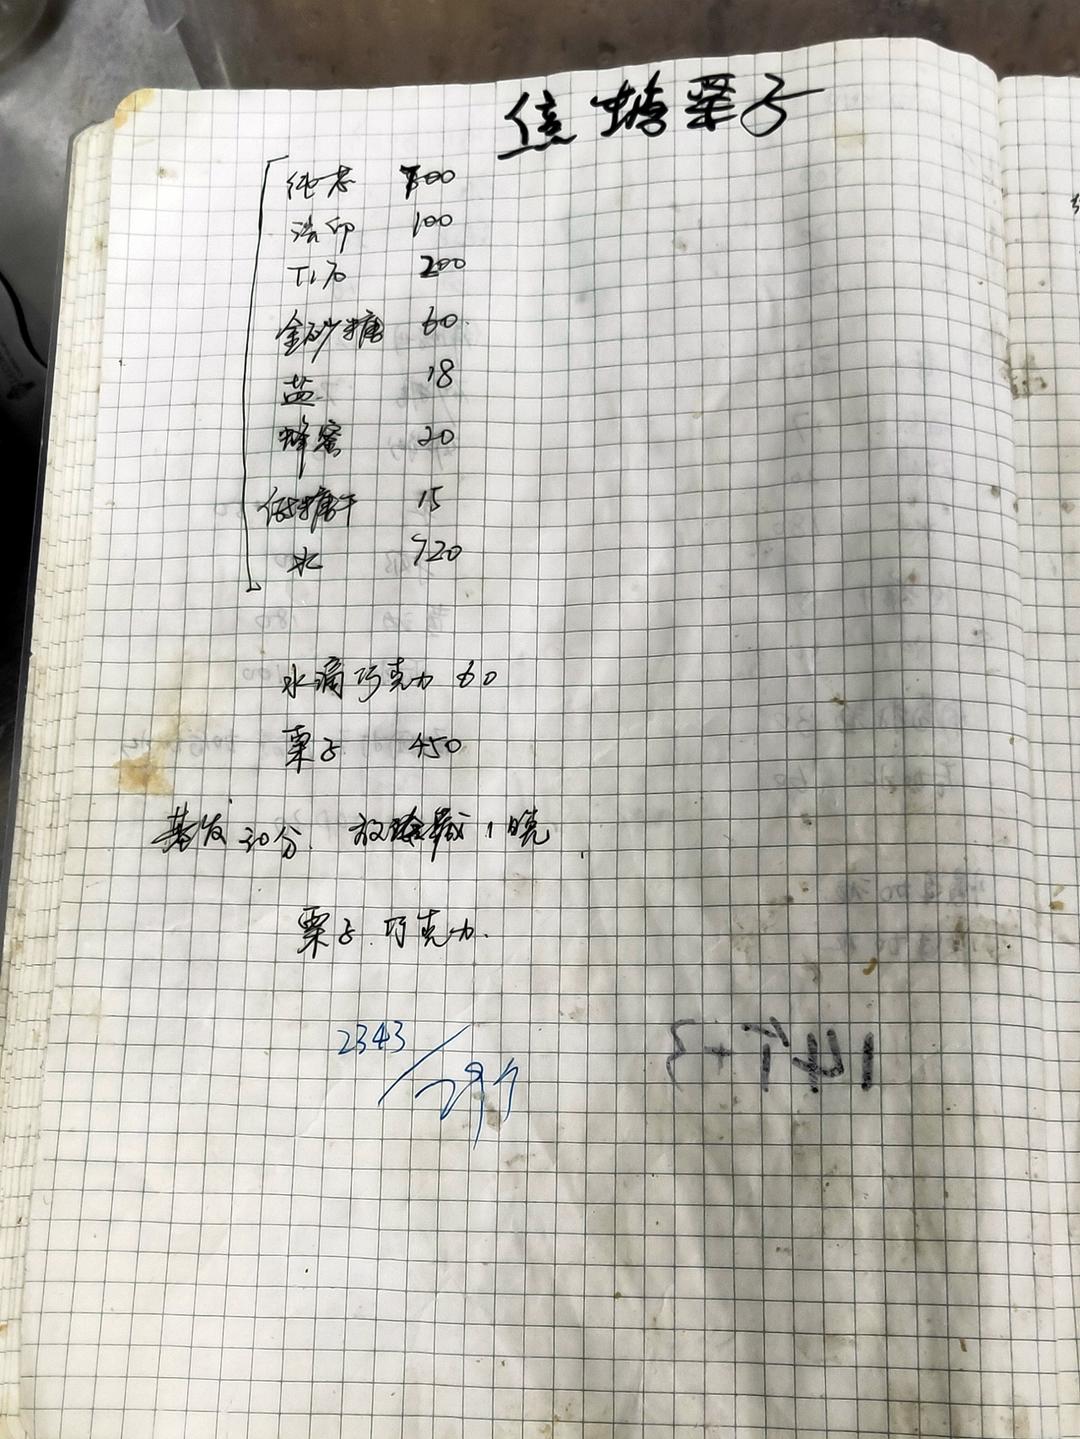 焦糖栗子
纯芯 700
法印 100
T170 200
金砂糖 60
盐 18
蜂蜜 20
低糖干 15
水 720
水滴巧克力 60
栗子 450
基发30分. 放冷藏1晚.
栗子.巧克力.
2343